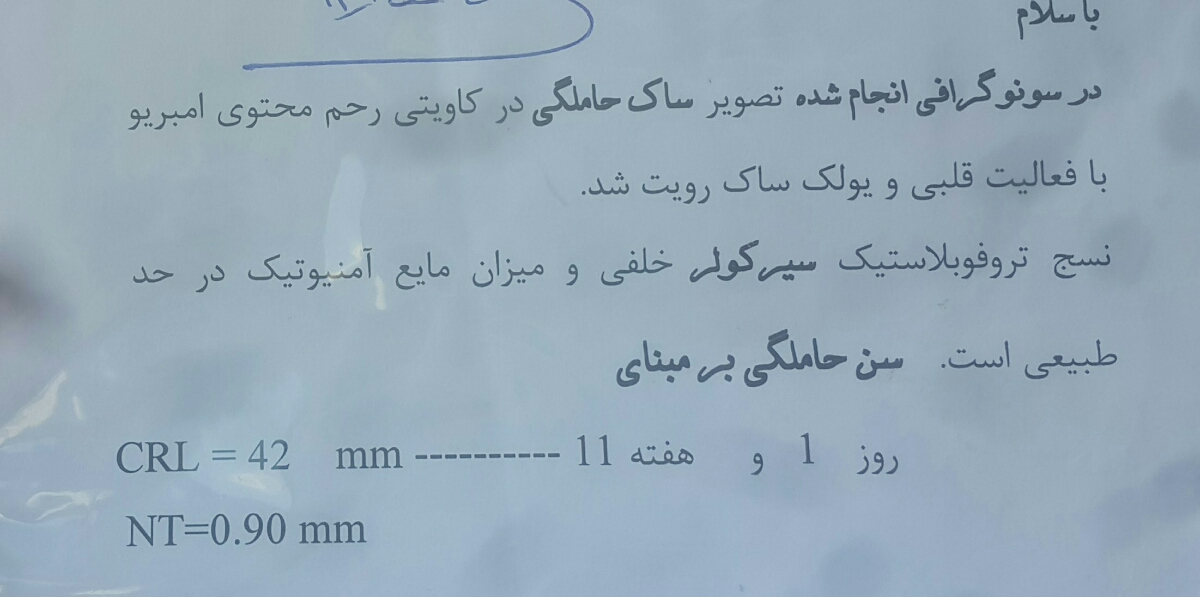 با سلام
در سونوگرافی انجام شده تصویر ساک حاملگی در کاویتی رحم محتوی امبریو
با فعالیت قلبی و یولک ساک رویت شد.
نسج تروفوبلاستیک سیرکولر خلفی و میزان مایع آمنیوتیک در حد
طبیعی است. سن حاملگی بر مبنای
CRL = 42 mm ---------- 11 هفته و 1 روز
NT=0.90 mm